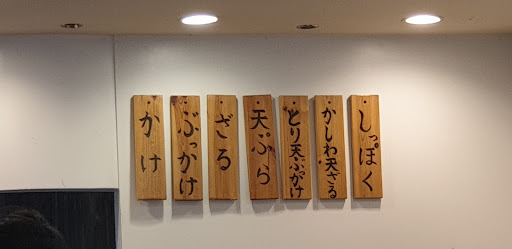 しっぽく
かしわ天ざる
とり天ぶっかけ
天ぷら
ざる
ぶっかけ
かけ